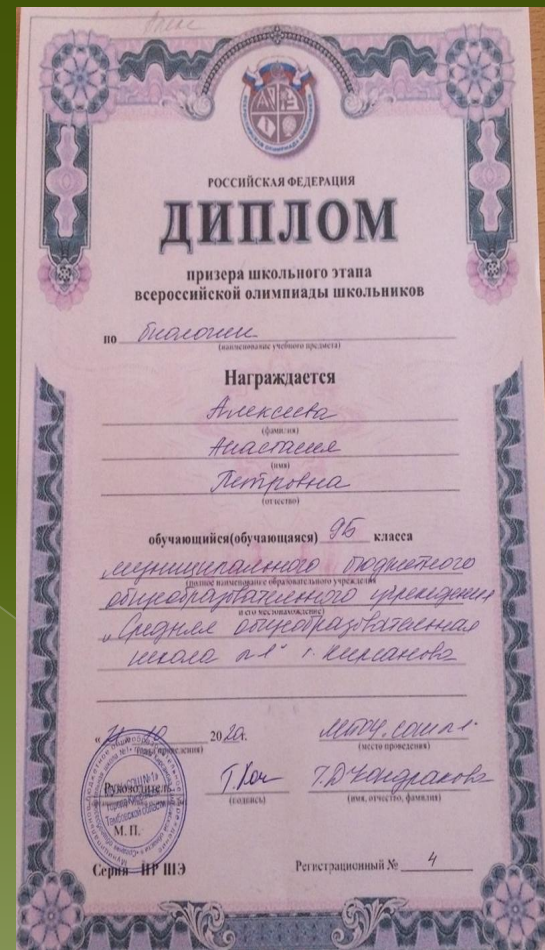 РОССИЙСКАЯ ФЕДЕРАЦИЯ
ДИПЛОМ
призера школьного этапа
всероссийской олимпиады школьников
по биологии
(наименование учебного предмета)
Награждается
Алексеева
(фамилия)
Анастасия
(имя)
Петровна
(отчество)
обучающийся(обучающаяся) 9Б класса
муниципального бюджетного
(полное наименование образовательного учреждения
общеобразовательного учреждения
и его местонахождение)
„Средняя общеобразовательная
школа №1" г. Кирсанова
10 2020г.
(дата проведения)
(место проведения)
Руководитель
(подпись)
(имя, отчество, фамилия)
М.П.
Серия ПР ШЭ
Регистрационный № 4